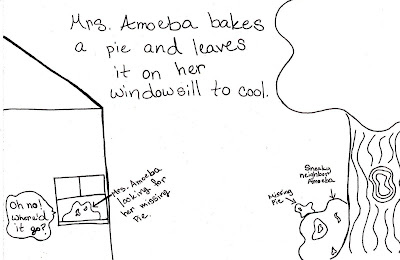 Mrs. Amoeba bakes
a pie and leaves
it on her
windowsill to cool.
Oh no!
Where'd
it go?
Mrs. Amoeba
looking for
her missing
pie.
Missing
Pie
Sneaky
neighbor
Amoeba